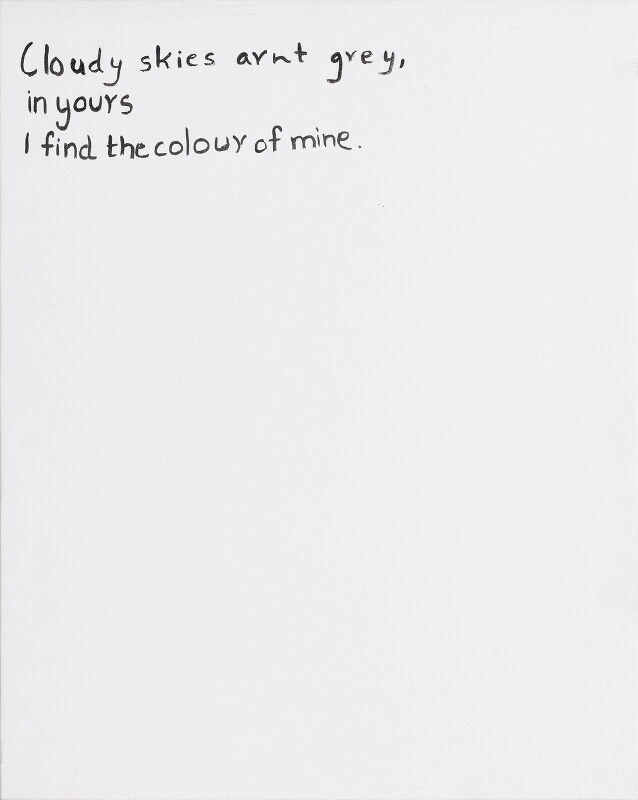 Cloudy skies arnt grey,
in yours
I find the colour of mine.